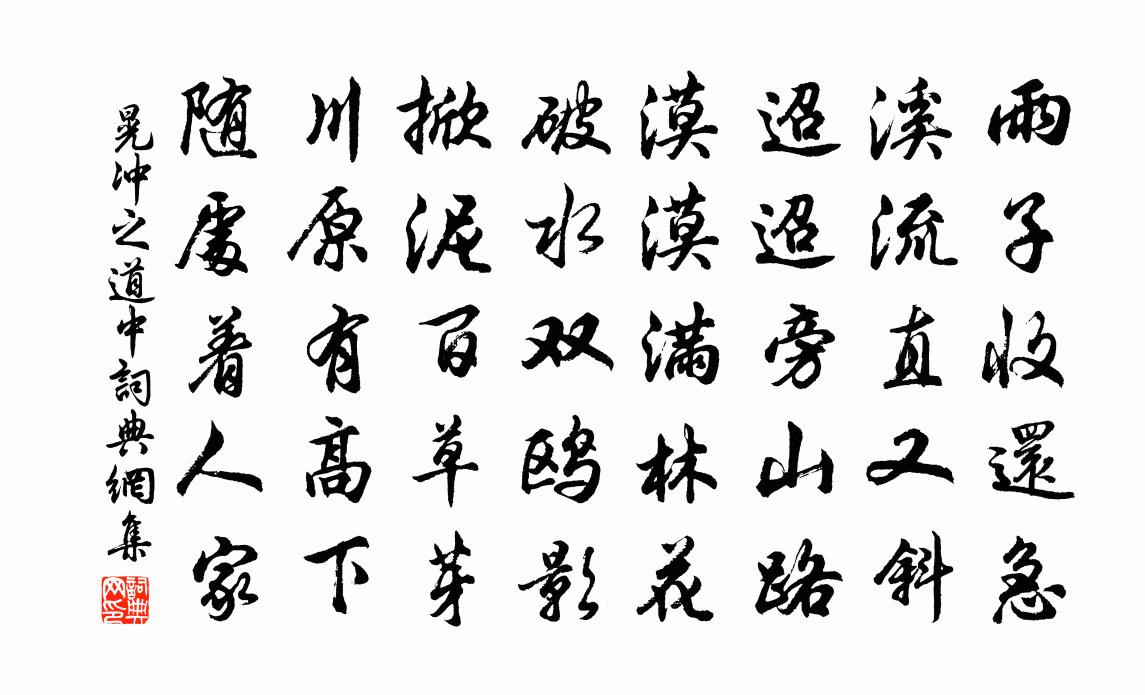 雨子收還急
溪流直又斜
迢迢旁山路
漠漠滿林花
破水双鸥影
掀泥百草芽
川原有高下
随處着人家
晁沖之道中詞典網集
詞典网印